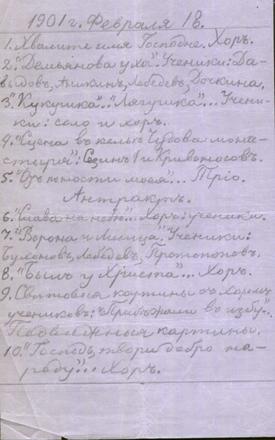 1901 г. Февраля 18.
1. Хвалите имя Господне. Хоръ.
2. "Демьянова уха". Ученики: Да-
выдовъ, Аникинъ, Лебедевъ, Дочкина.
3. "Кукушка". "Лягушка"... Учени-
ки: соло и хоръ.
4. "Сцена въ кельѣ Чудова мона-
стыря": и Кривоносовъ.
5. "Отъ юности моея"... Тріо.
Антрактъ.
6. "Слава на небѣ"... Хоръ: ученики.
7. "Ворона и Лисица" Ученики:
Лебедевъ, Протопоповъ.
8. "Былъ у Христа"... Хоръ.
9. Свѣтовыя картины съ хоромъ
учениковъ: "Прибѣжали въ избу"...
картины.
10. "Господь, твори добро на-
роду"... Хоръ.